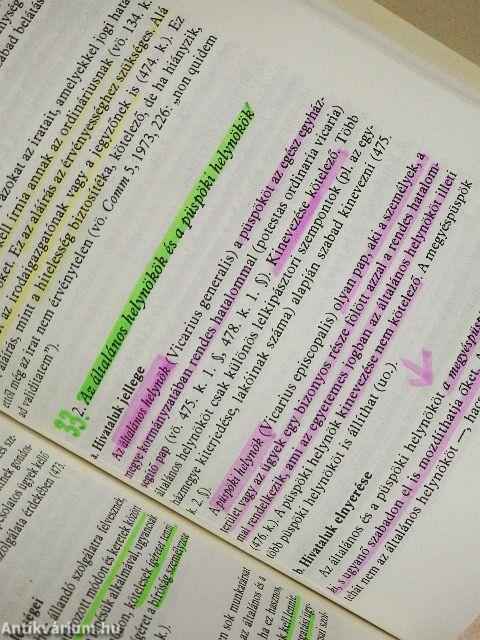 azokat az iratait, amelyekkel jogi hatá
kell írnia annak az ordináriusnak (vö. 134. k.
Ez az aláírás az érvényességhez szükséges. Alá
az irodaigazgatónak vagy a jegyzőnek is (474. k.). Ez
aláírás, mint a hitelesség biztosítéka, kötelező, de ha hiányzik,
ettől még az irat nem érvénytelen (vö. Comm 5, 1973, 226: „non quidem
ad validitatem").
33.
2. Az általános helynökök és a püspöki helynökök
a. Hivataluk jellege
Az általános helynök (Vicarius generalis) a püspököt az egész egyház-
megye kormányzatában rendes hatalommal (potestas ordinaria vicaria)
segítő pap (vö. 475. k. 1. §, 478. k. 1. §). Kinevezése kötelező. Több
általános helynököt csak különös lelkipásztori szempontok (pl. az egy-
házmegye kiterjedése, lakóinak száma) alapján szabad kinevezni (475.
k. 2. §).
A püspöki helynök (Vicarius episcopalis) olyan pap, aki a személyek, a
terület vagy az ügyek egy bizonyos része fölött azzal a rendes hatalom-
mal rendelkezik, ami az egyetemes jogban az általános helynököt illeti
(476. k.). A püspöki helynök kinevezése nem kötelező. A megyéspüspök
több püspöki helynököt is állíthat (uo.).
b. Hivataluk elnyerése
Az általános és a püspöki helynököt a megyéspüspök
ki, s ugyanő szabadon el is mozdíthatja őket. A
tehát nem az általános helynököt –, hacs
állandó szolgálatra felvesznek,
azott módon és keretek között
rült alkalmával, ugyancsak
kötelesek ígéretet tenni
géret a bíróság személyzete
szolgálata érdekében (473.
ok munkatársat
az általános és a
ha ez hasznos
Antikvárium.hu